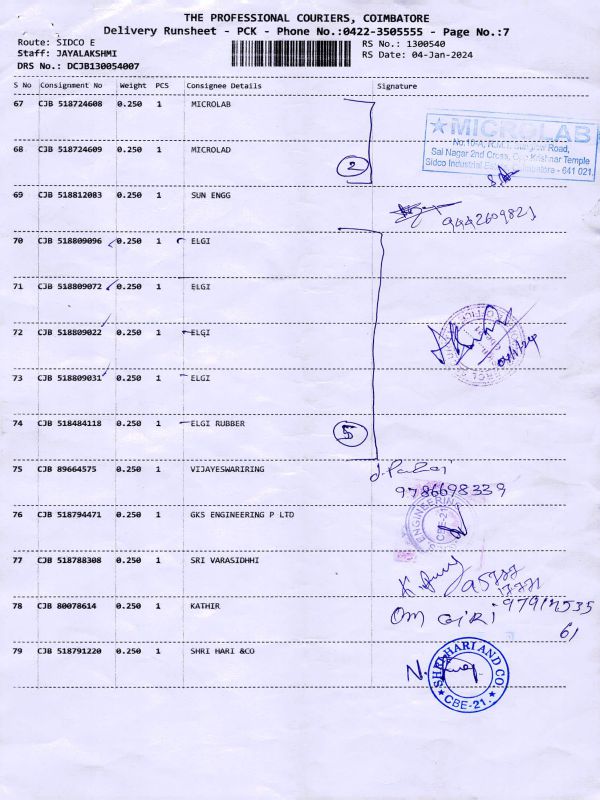 THE PROFESSIONAL COURIERS, COIMBATORE
Delivery Runsheet - PCK - Phone No.:0422-3505555 - Page No.:7
Route: SIDCO E
RS No.: 1300540
Staff: JAYALAKSHMI
RS Date: 04-Jan-2024
DRS No.: DCJB130054007
S No Consignment No Weight PCS Consignee Details Signature
67 CJB 518724608 0.250 1 MICROLAB
MICROLAB
No.10-A, Road,
Sai Nagar 2nd Cross, Opp. Krishnar Temple
Sidco Industrial Coimbatore - 641 021
68 CJB 518724609 0.250 1 MICROLAD
2
69 CJB 518812083 0.250 1 SUN ENGG
9442609821
70 CJB 518809096 0.250 1 ELGI
71 CJB 518809072 0.250 1 ELGI
72 CJB 518809022 0.250 1 ELGI
73 CJB 518809031 0.250 1 ELGI
74 CJB 518484118 0.250 1 ELGI RUBBER
5
75 CJB 89664575 0.250 1 VIJAYESWARIRING
9786698339
76 CJB 518794471 0.250 1 GKS ENGINEERING P LTD
ENGINEERING
CBE-21
77 CJB 518788308 0.250 1 SRI VARASIDHHI
78 CJB 80078614 0.250 1 KATHIR
OM GIRI
61
79 CJB 518791220 0.250 1 SHRI HARI &CO
SHRI HARI AND CO.
CBE-21.